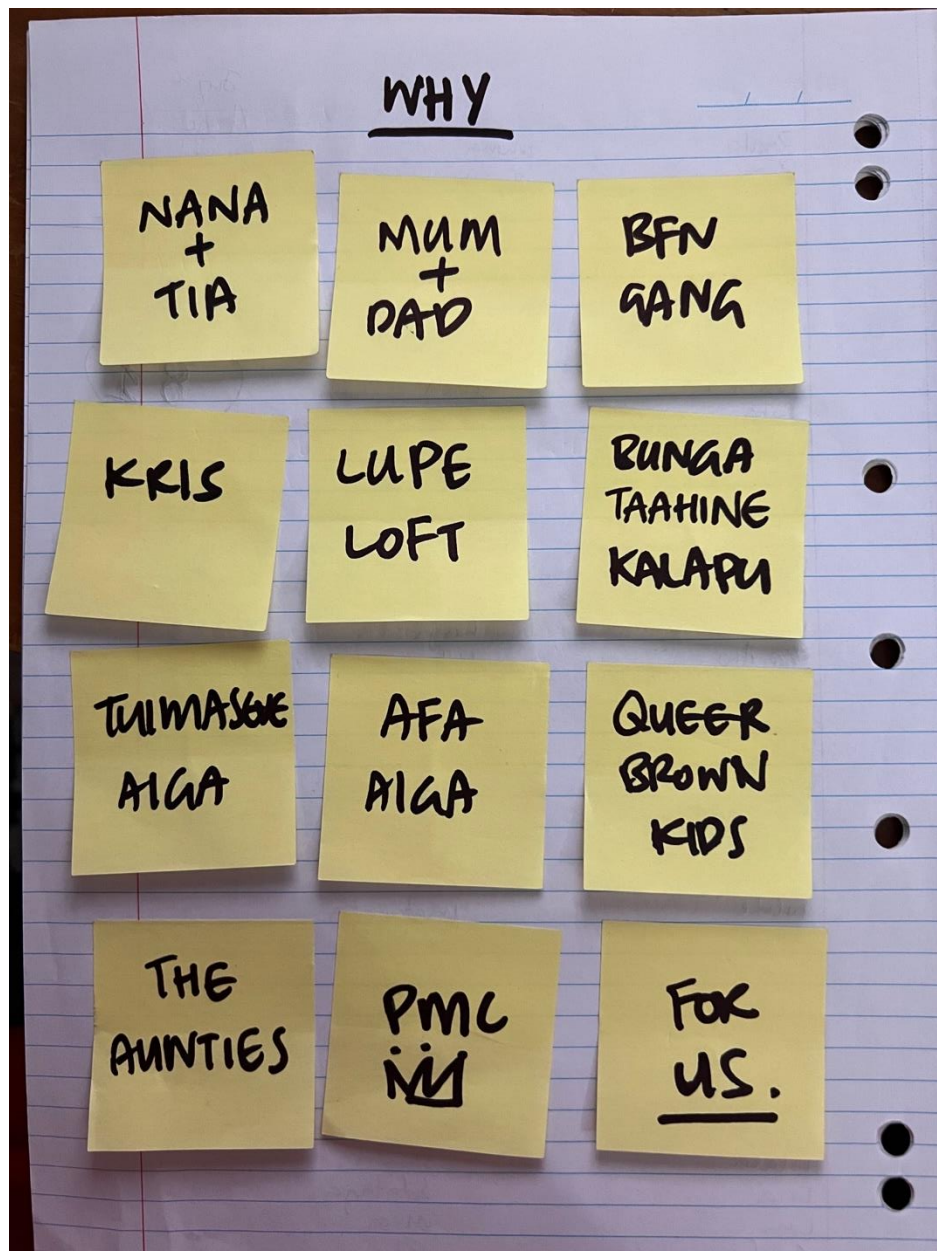 WHY
NANA
+
TIA
MUM
+
DAD
BFN
GANG
KRIS
LUPE
LOFT
BUNGA
TAAHINE
KALAPU
AIGA
AFA
AIGA
QUEER
BROWN
KIDS
THE
AUNTIES
PMC
FOR
US.